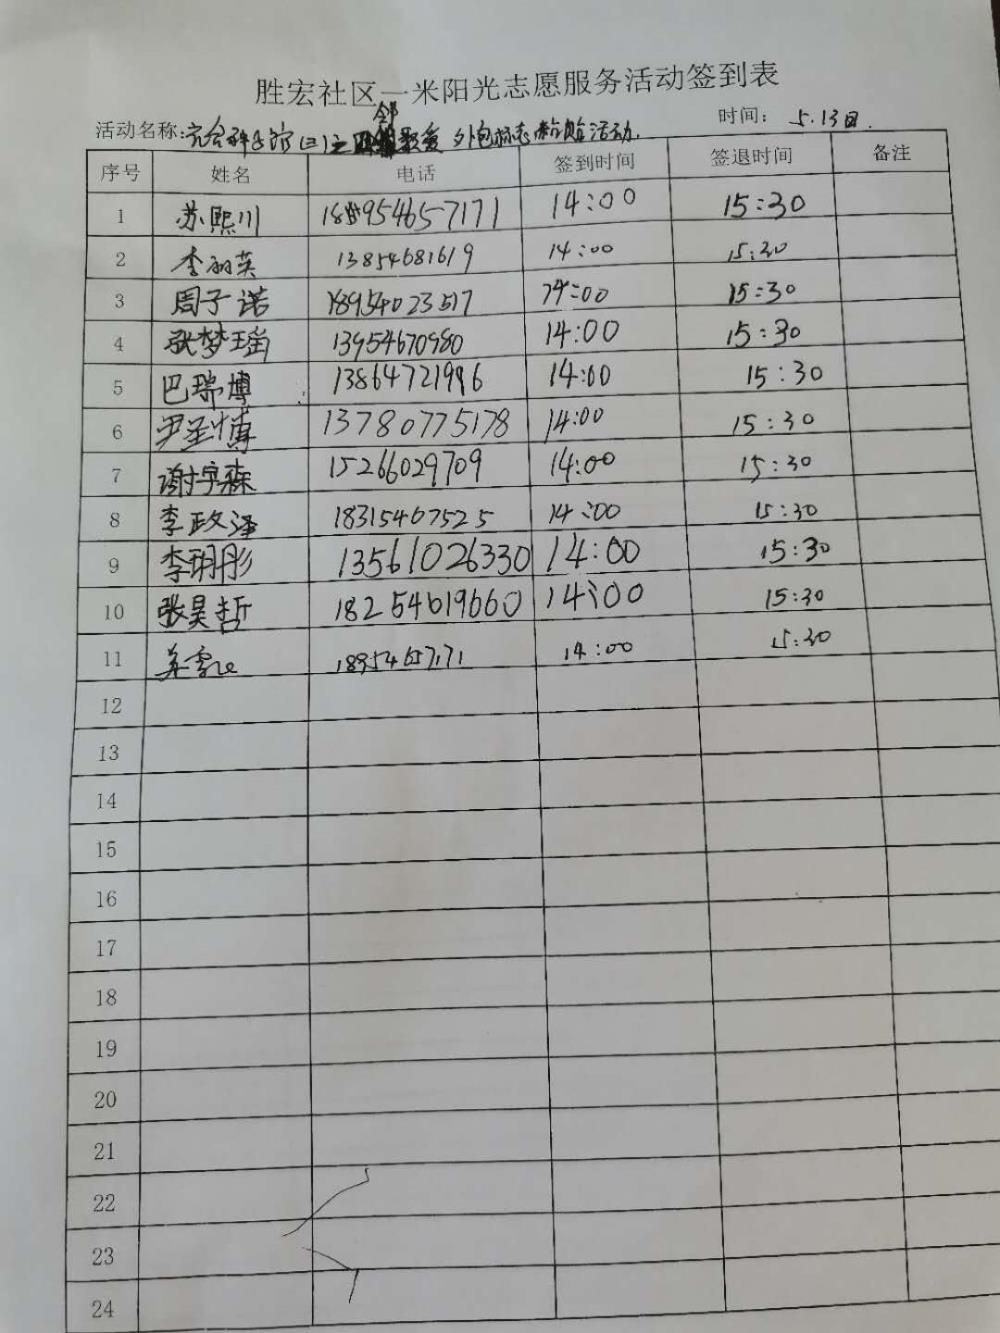 胜宏社区一米阳光志愿服务活动签到表
活动名称: 时间: 5.13日.
序号 姓名 电话 签到时间 签退时间 备注
1 苏熙川 188954657171 14:00 15:30
2 李 英 13854681619 14:00 15:30
3 周子诺 18954023517 14:00 15:30
4 张梦瑶 13954670980 14:00 15:30
5 巴瑞博 13864721996 14:00 15:30
6 尹圣博 13780775178 14:00 15:30
7 谢宇森 15266029709 14:00 15:30
8 李政泽 18315467525 14:00 15:30
9 李玥彤 13561026330 14:00 15:30
10 张昊哲 18254619660 14:00 15:30
11 18954657171 14:00 15:30
12
13
14
15
16
17
18
19
20
21
22
23
24